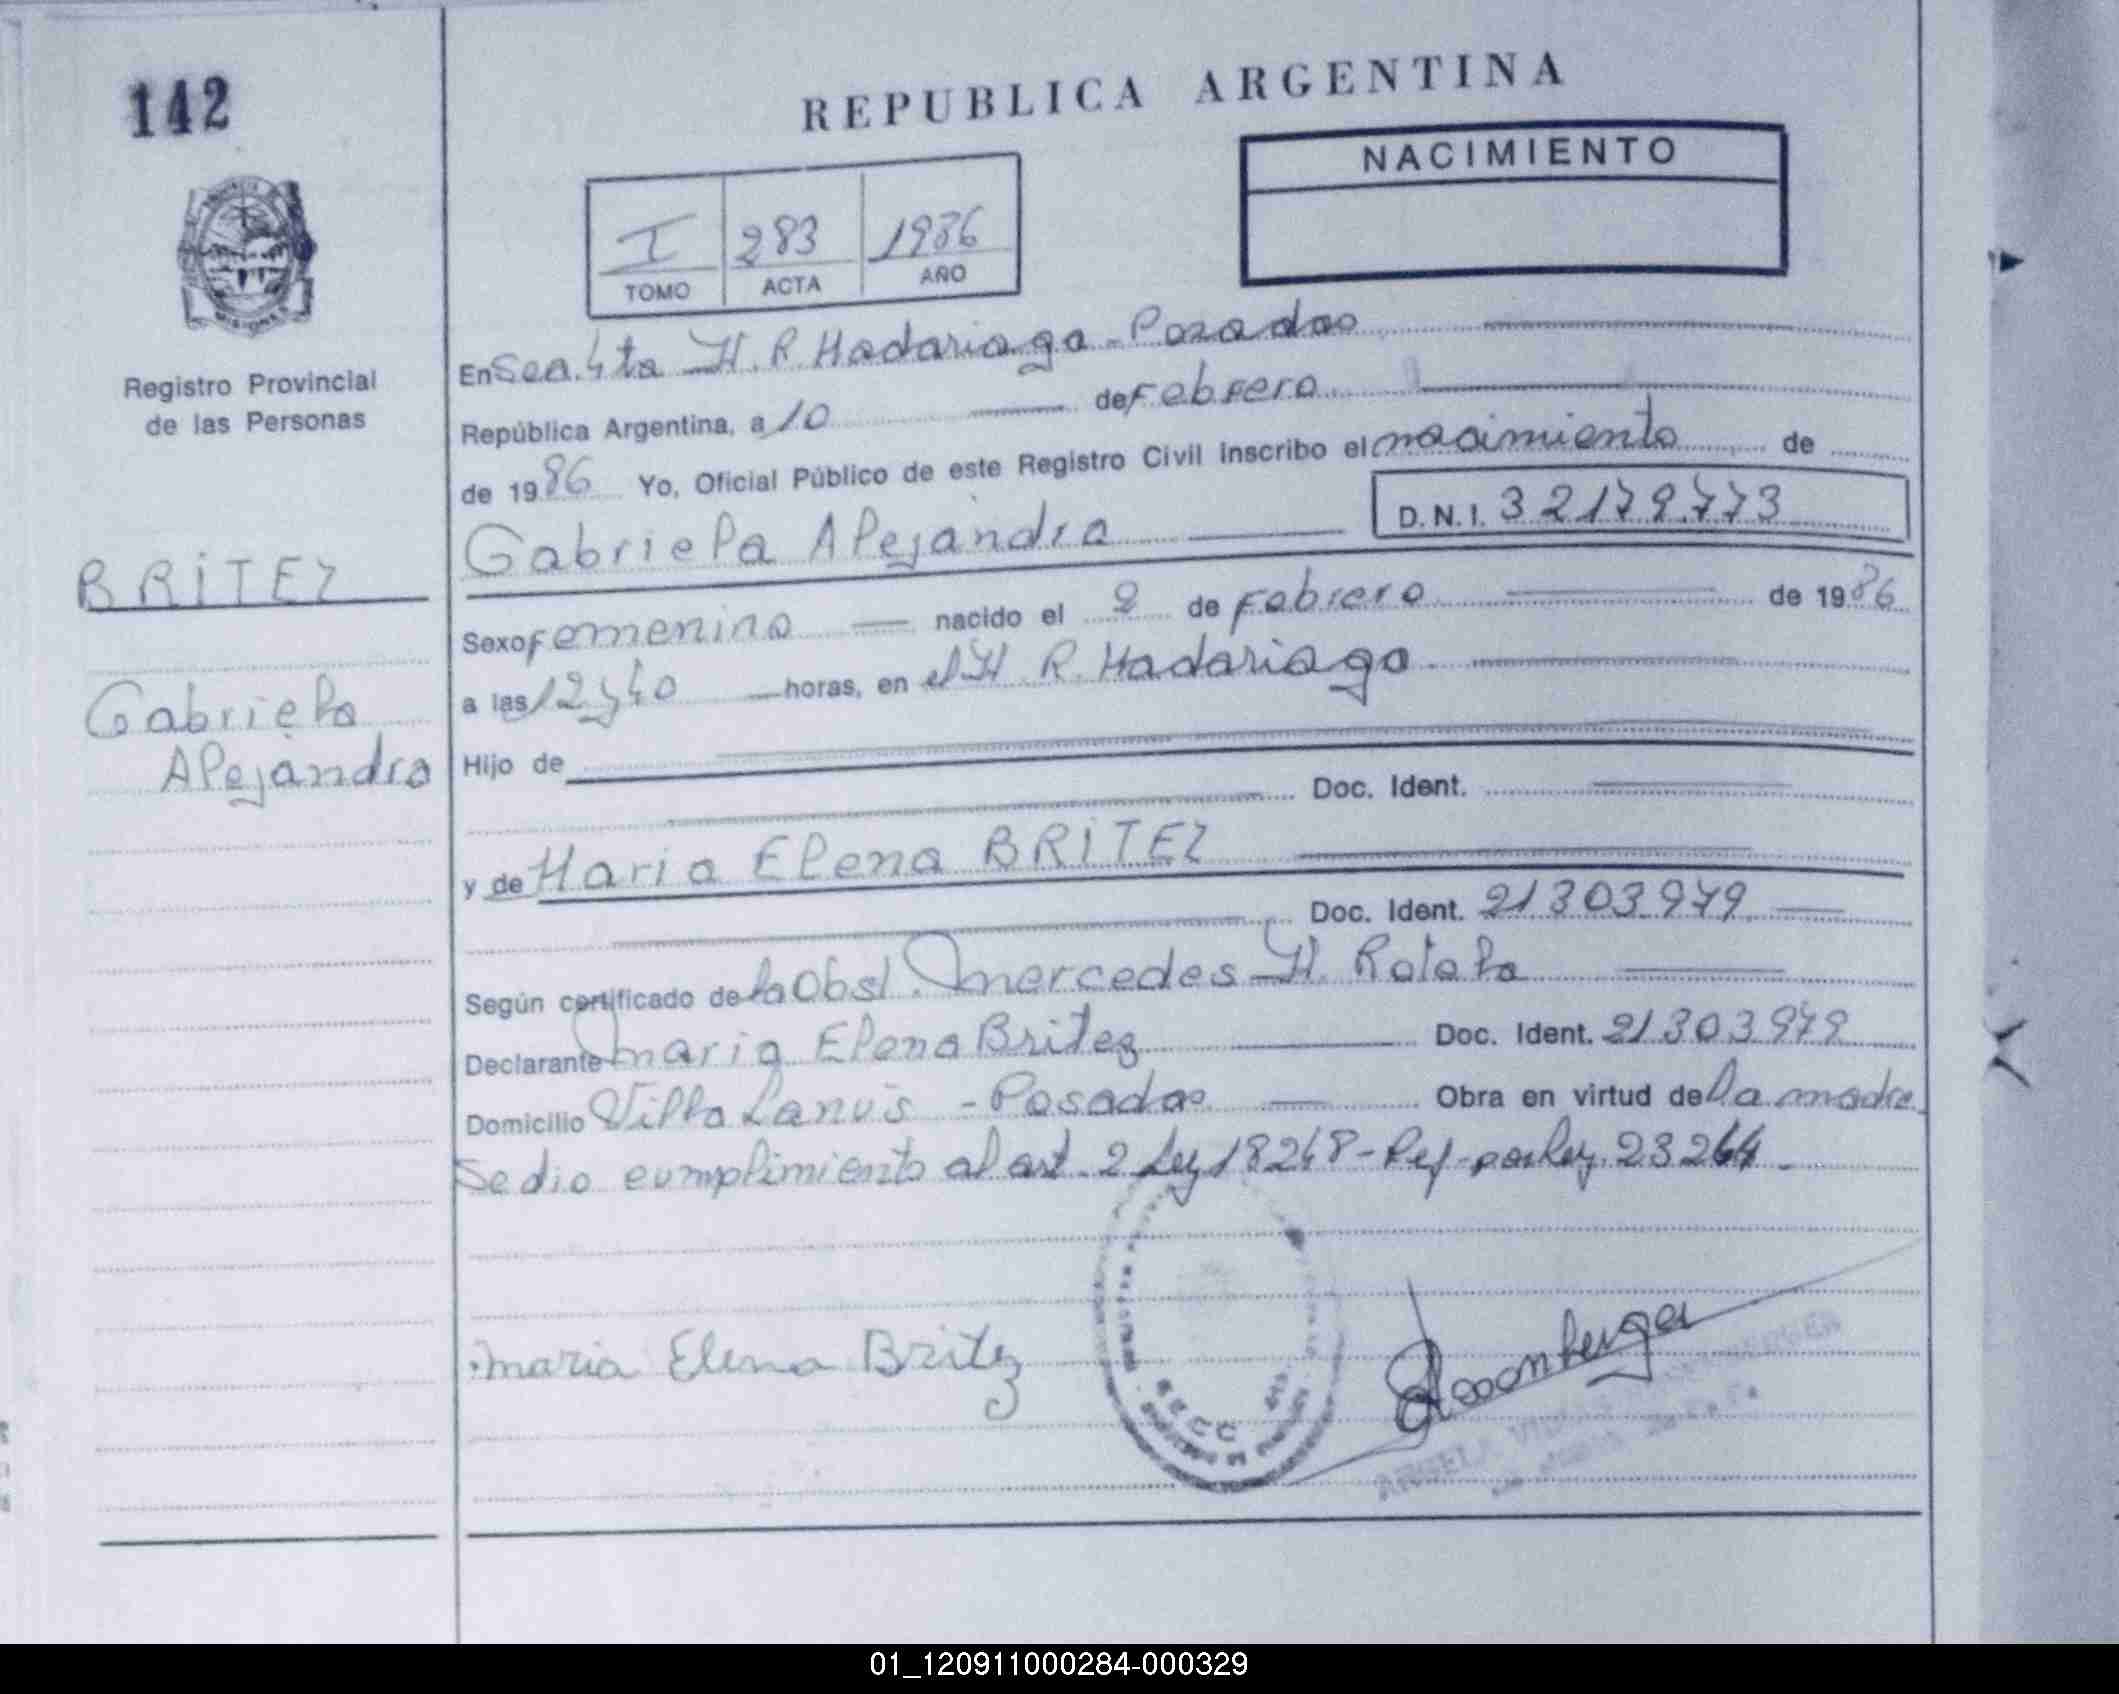 142
REPUBLICA ARGENTINA
NACIMIENTO
I 283 1986
TOMO ACTA AÑO
MISIONES
Registro Provincial
de las Personas
BRITEZ
Gabriela
Alejandra
En Sec. 4ta H. R. Madariaga - Posadas
República Argentina, a 10 de Febrero
de 1986 Yo, Oficial Público de este Registro Civil inscribo el nacimiento de
Gabriela Alejandra D.N.I. 32179.773
Sexo Femenino nacido el 2 de Febrero de 1986
a las 12 y 40 horas, en el H. R. Madariaga
Hijo de
Doc. Ident.
y de Maria Elena BRITEZ
Doc. Ident. 21303979
Según certificado de la Obst. Mercedes H. Rotela
Declarante Maria Elena Britez Doc. Ident. 21303979
Domicilio Villa Lanús - Posadas Obra en virtud de la madre
Se dio cumplimiento al art. 2 Ley 18248 - Ref - por Ley 23264 -
Maria Elena Britez
ANGELA
01_120911000284-000329